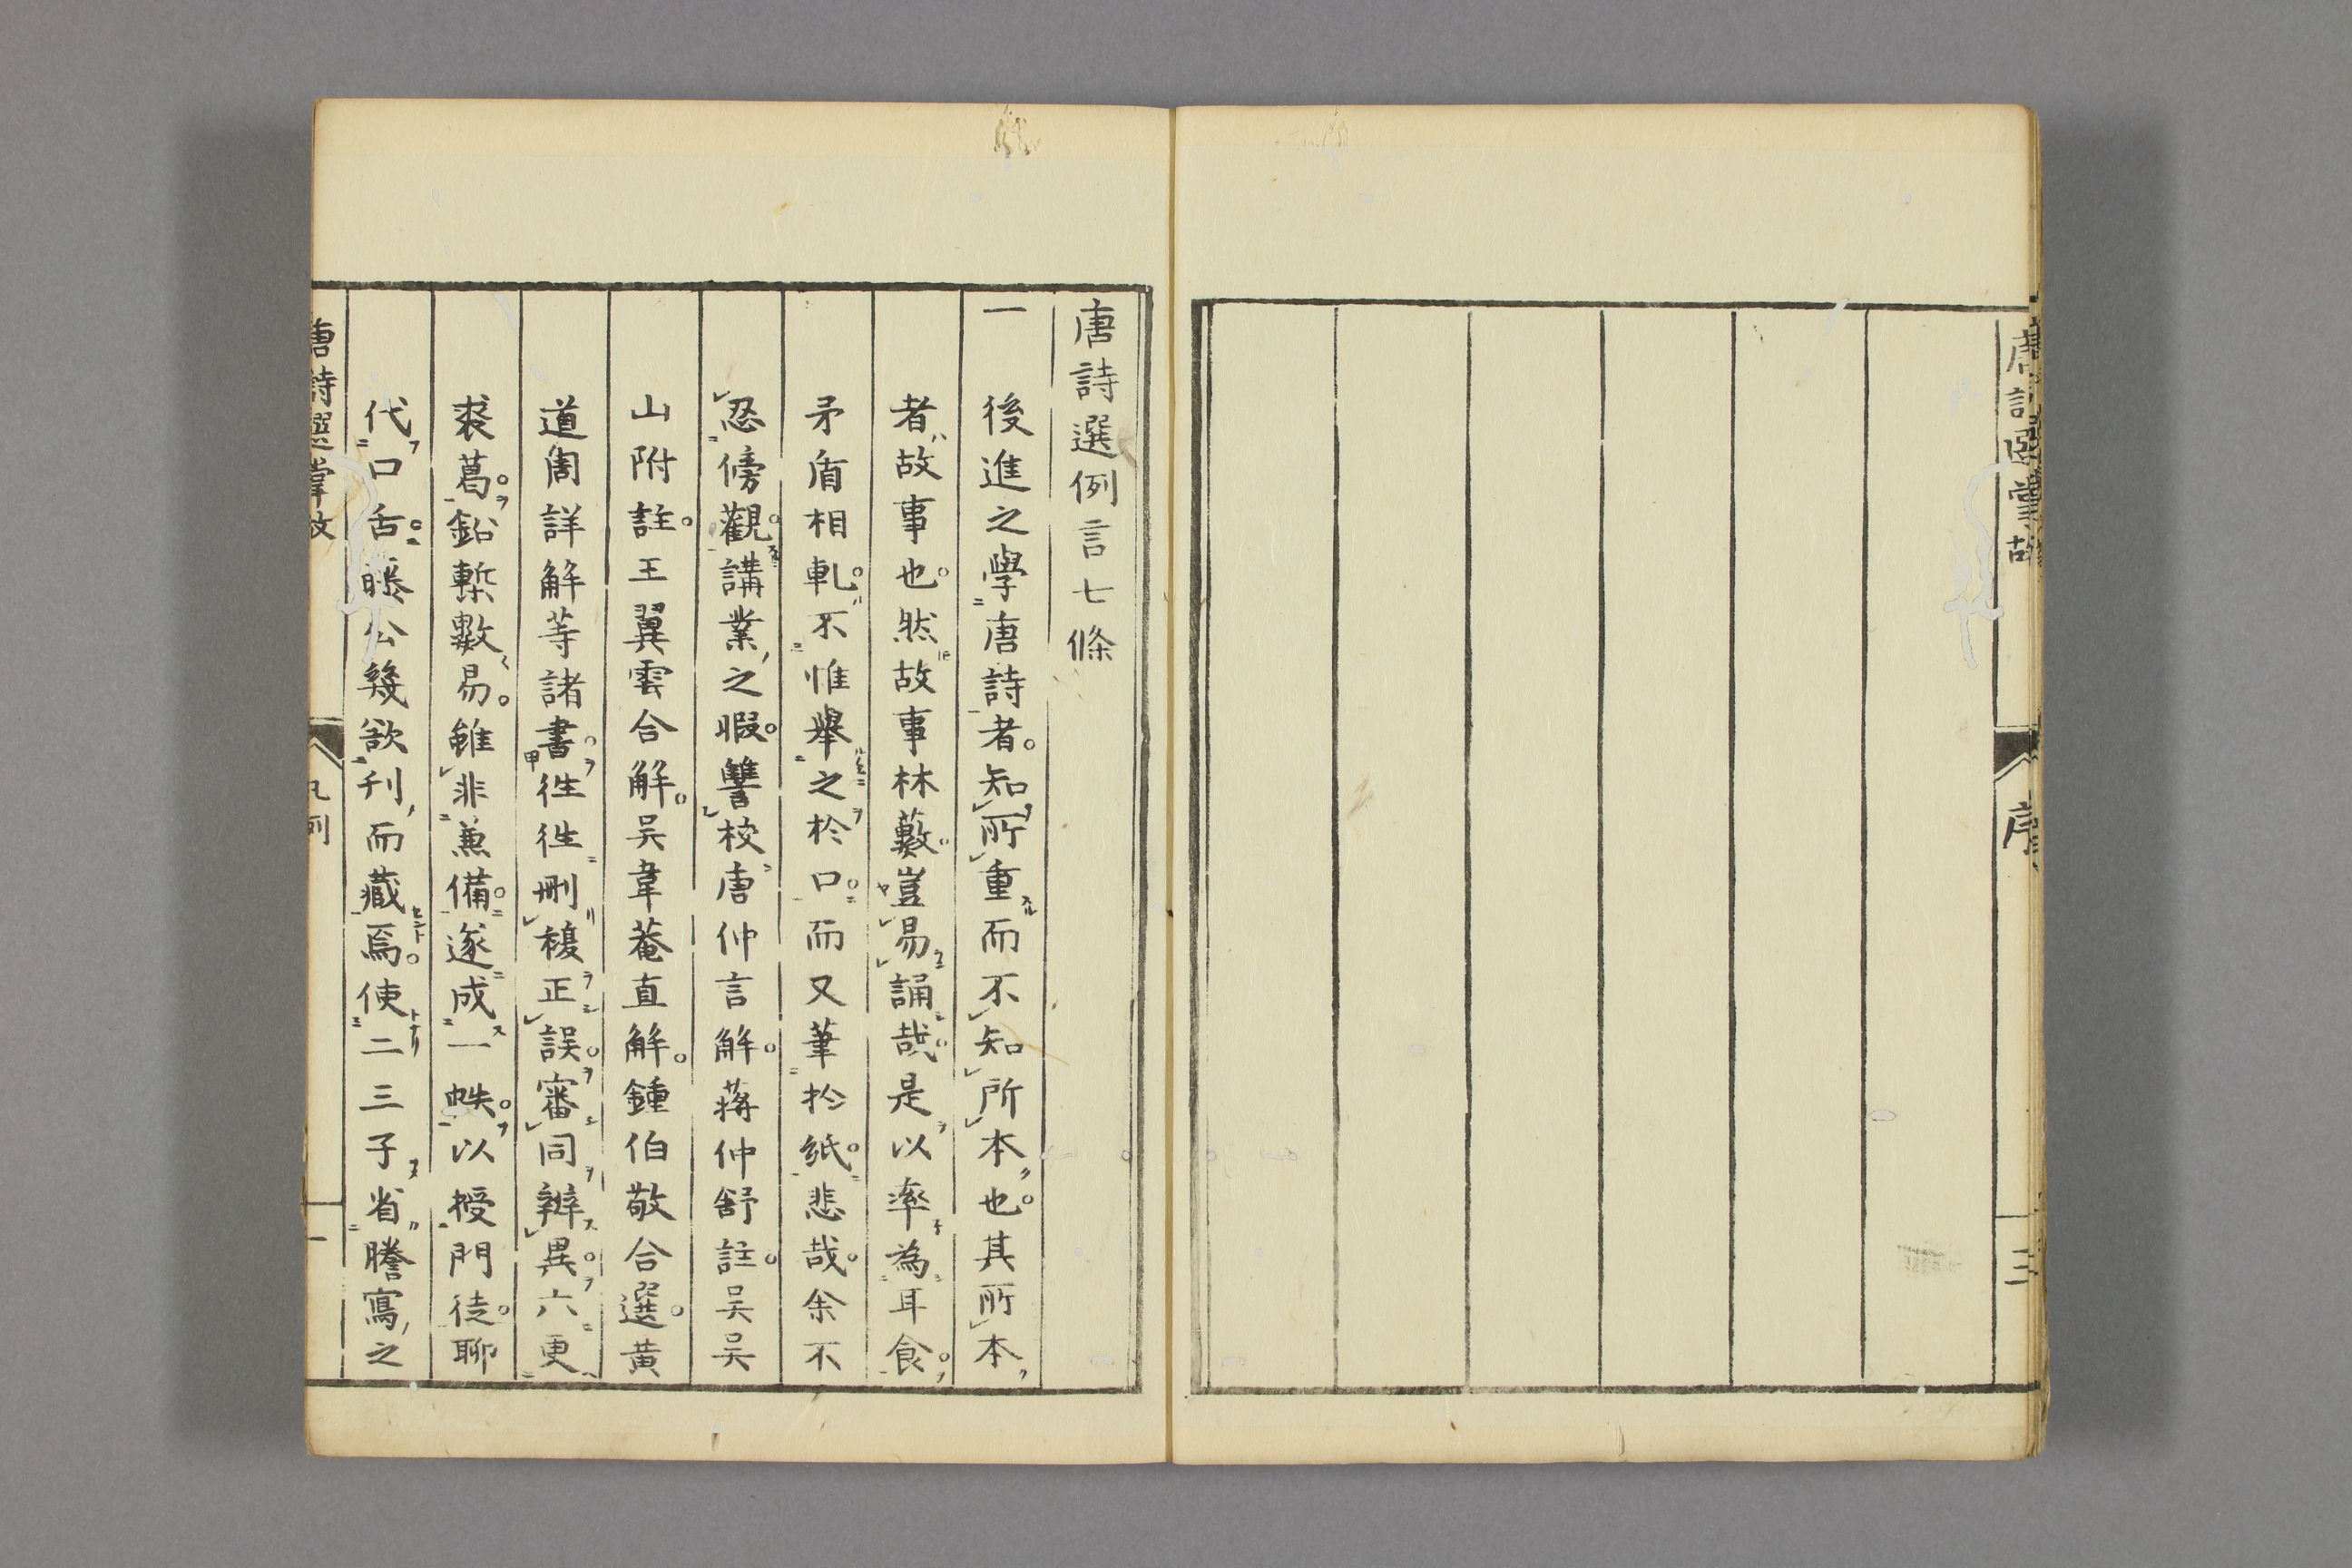 唐詩選掌故
序
三
唐詩選例言七條
一後進之學唐詩者。知所重而不知所本也。其所本
者故事也。然故事林藪。豈易誦哉。是以率為耳食。
矛盾相軋。不惟舉之於口。而又筆於紙。悲哉。余不
忍傍觀。講業之暇。讐校唐仲言解。蔣仲舒註。吴吴
山附註。王翼雲合解。吴韋菴直解。鍾伯敬合選。黄
道周詳解等諸書。徃徃刪複正誤。審同辨異。六更
裘葛。鉛槧數易。雖非兼備。遂成一帙。以授門徒。聊
代口舌。滕公幾欲刊而藏焉。使二三子省謄寫之
唐詩選掌故
凡例
一